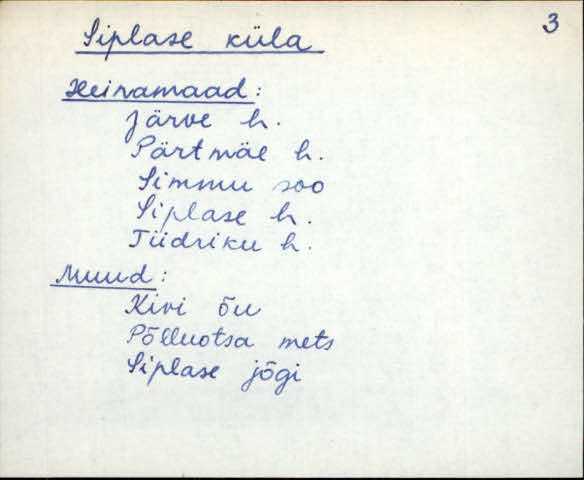 3
Siplase küla
Heinamaad:
Järve h.
Pärtmäe h.
Simmu soo
Siplase h.
Tiidriku h.
Muud:
Kivi õu
Põlluotsa mets
Siplase jõgi